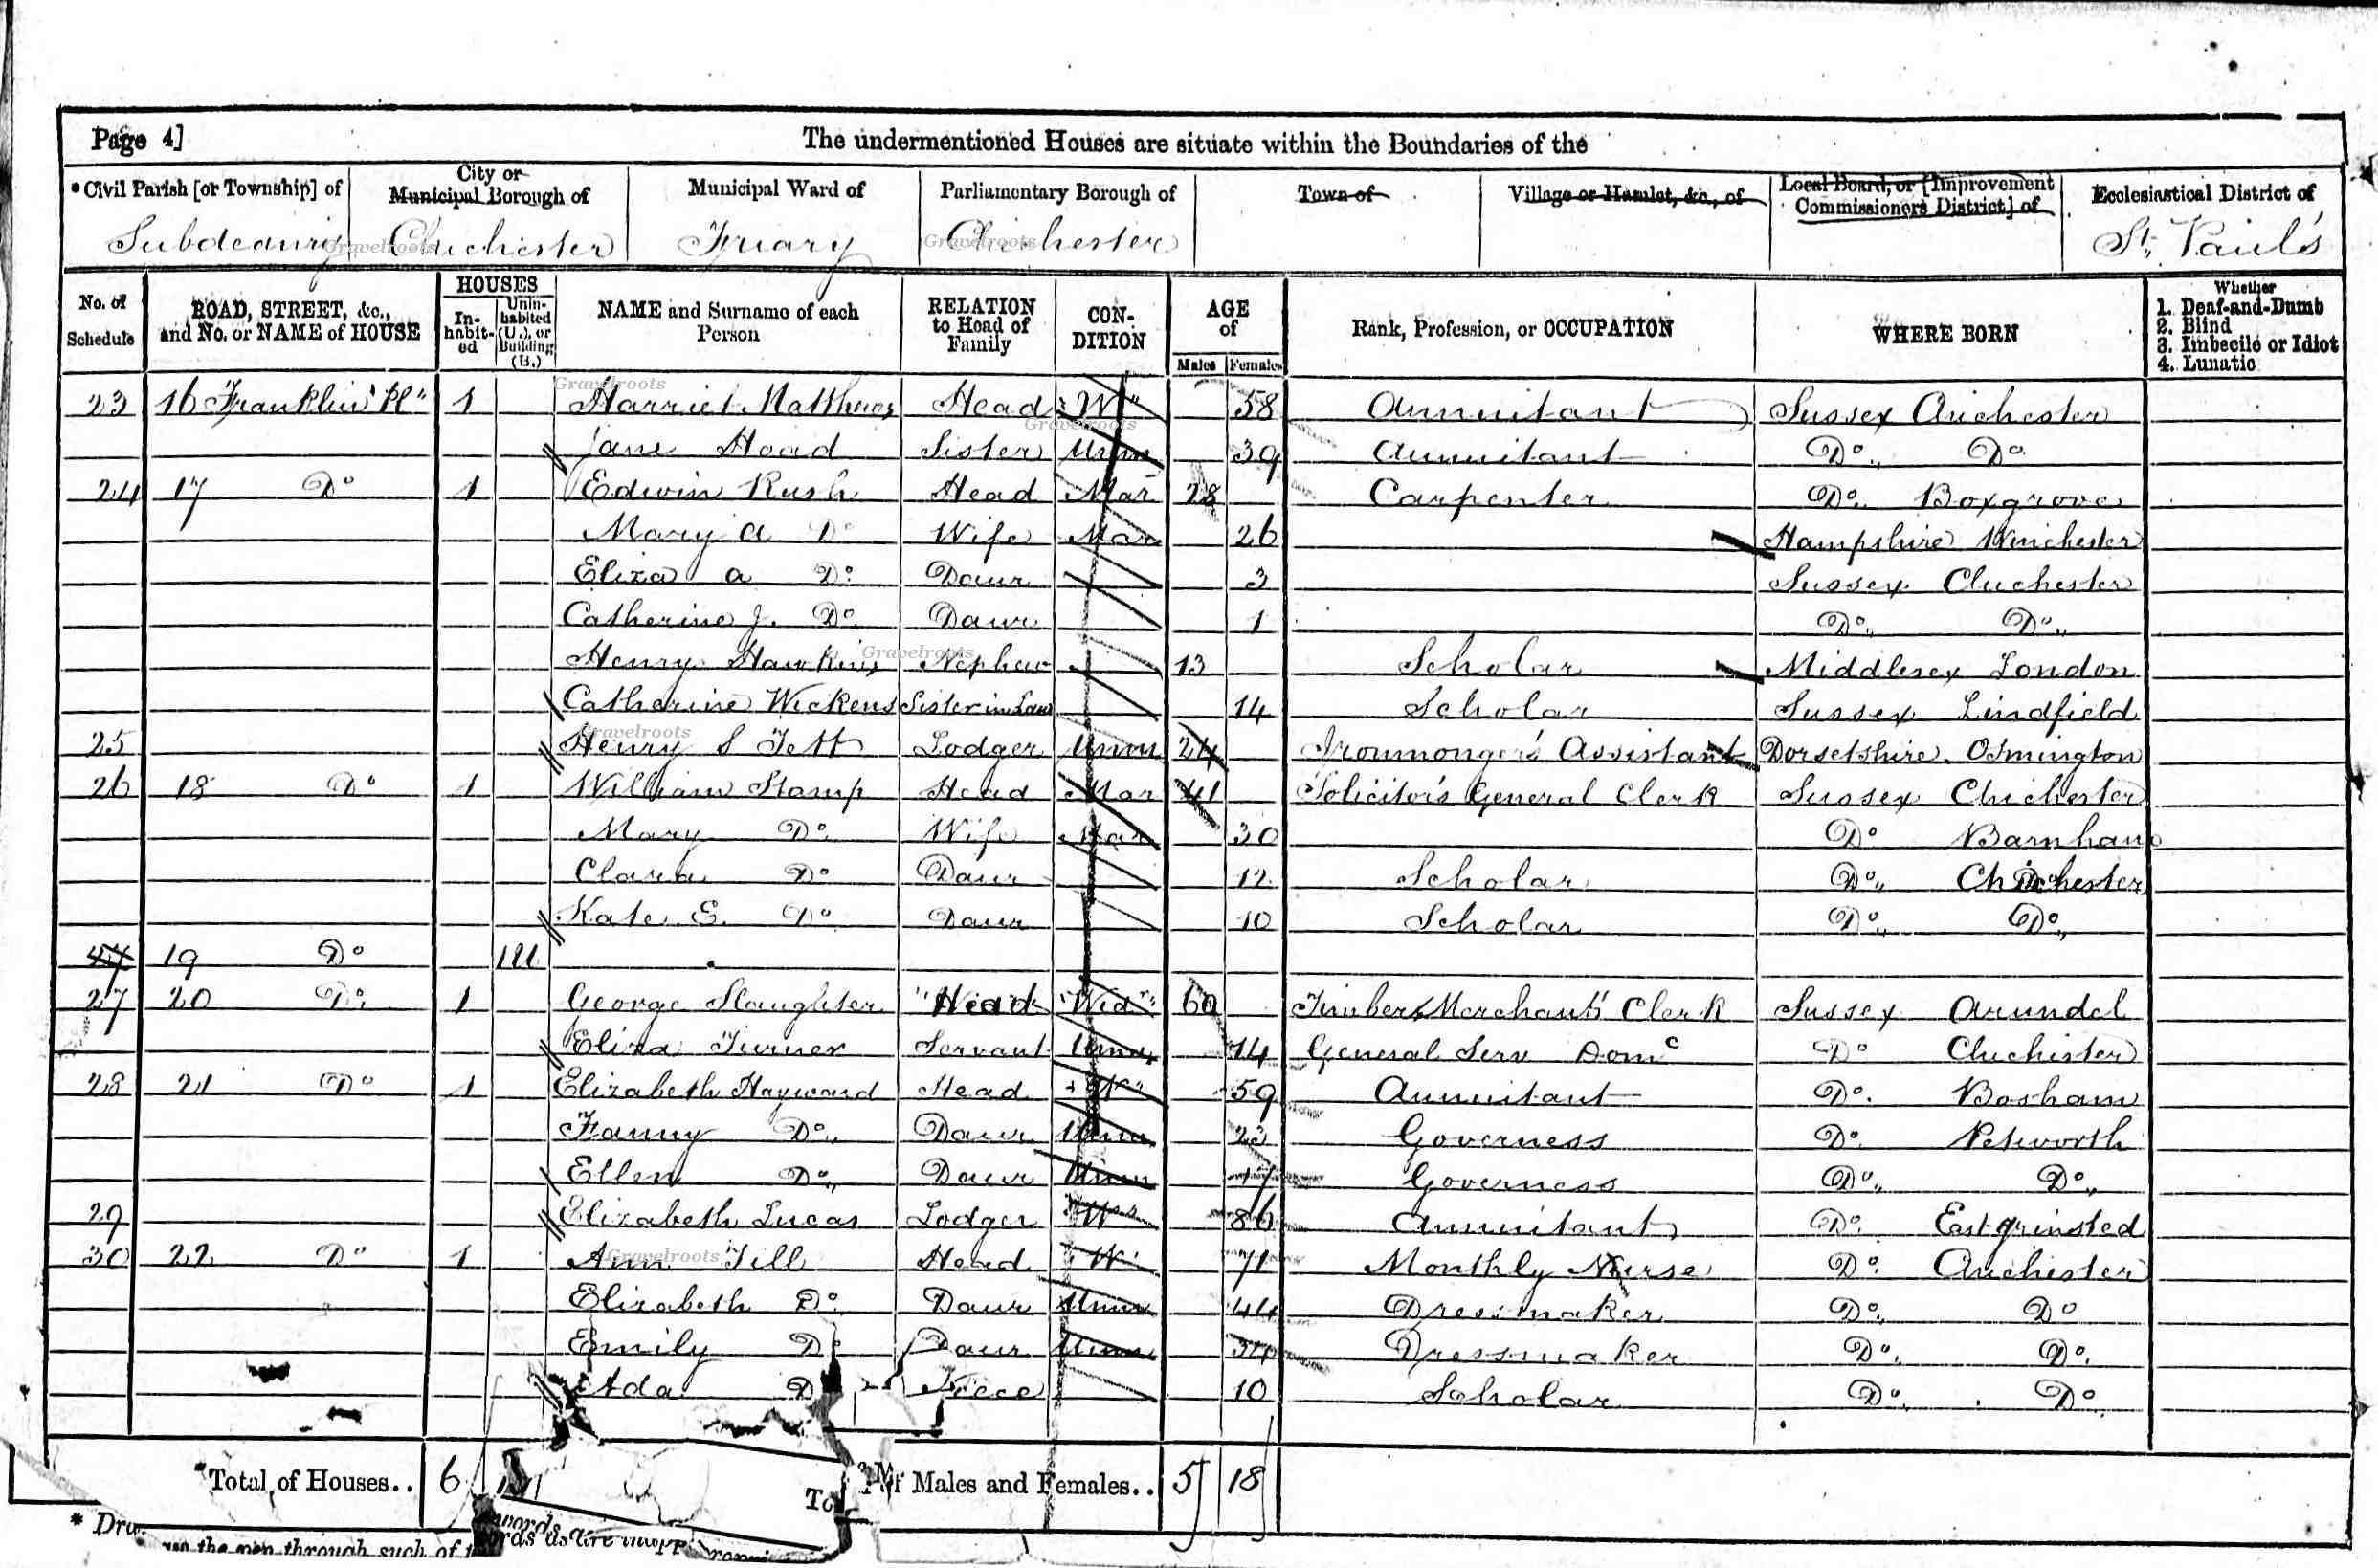 Page 4]
The undermentioned Houses are situate within the Boundaries of the
*Civil Parish [or Township] of
Subdeanry
City or Municipal Borough of
Chichester
Municipal Ward of
Friary
Parliamentary Borough of
Chichester
Town of
Village or Hamlet, &c., of
Local Board, or [Improvement Commissioners District] of
Ecclesiastical District of
St. Paul's
No. of Schedule
ROAD, STREET, &c., and No. or NAME of HOUSE
HOUSES
In-habit-ed
Unin-habited (U.), or Building (B.)
NAME and Surname of each Person
RELATION to Head of Family
CON-DITION
AGE of
Males Females
Rank, Profession, or OCCUPATION
WHERE BORN
Whether
1. Deaf-and-Dumb
2. Blind
3. Imbecile or Idiot
4. Lunatic
23 16 Franklin Pl 1 Harriet Matthews Head W 58 Annuitant Sussex Chichester
Jane Hoad Sister Unm 39 Annuitant Do. Do.
24 17 Do 1 Edwin Rush Head Mar 28 Carpenter Do. Boxgrove
Mary A Do Wife Mar 26 Hampshire Winchester
Eliza A Do. Daur 3 Sussex Chichester
Catherine J. Do. Daur 1 Do. Do.
Henry Hawkins Nephew 13 Scholar Middlesex London
Catherine Wickens Sister in Law 14 Scholar Sussex Lindfield
25 Henry S Tett Lodger Unm 24 Ironmonger's Assistant Dorsetshire Osmington
26 18 Do 1 William Stamp Head Mar 41 Solicitor's General Clerk Sussex Chichester
Mary Do. Wife Mar 30 Do Barnham
Clara Do Daur 12 Scholar Do. Chichester
Kate E. Do Daur 10 Scholar Do. Do.
19 Do 1U
27 20 Do. 1 George Slaughter Head Wid 60 Timber Merchants' Clerk Sussex Arundel
Eliza Turner Servant Unm 14 General Serv Domc Do Chichester
28 21 Do 1 Elizabeth Hayward Head W 59 Annuitant Do. Bosham
Fanny Do. Daur Unm 23 Governess Do. Petworth
Ellen Do. Daur Unm 17 Governess Do. Do.
29 Elizabeth Lucas Lodger W 86 Annuitant Do. East grinsted
30 22 Do 1 Ann Till Head W 71 Monthly Nurse Do. Chichester
Elizabeth Do. Daur Unm 44 Dressmaker Do. Do
Emily Do Daur Unm 34 Dressmaker Do. Do.
Ada D 10 Scholar Do. Do.
Total of Houses.. 6
To
of Males and Females.. 5 18
* Dra
the pen through such of
words as are inapp
Gravelroots
Gravelroots
Gravelroots
Gravelroots
Gravelroots
Gravelroots
Gravelroots